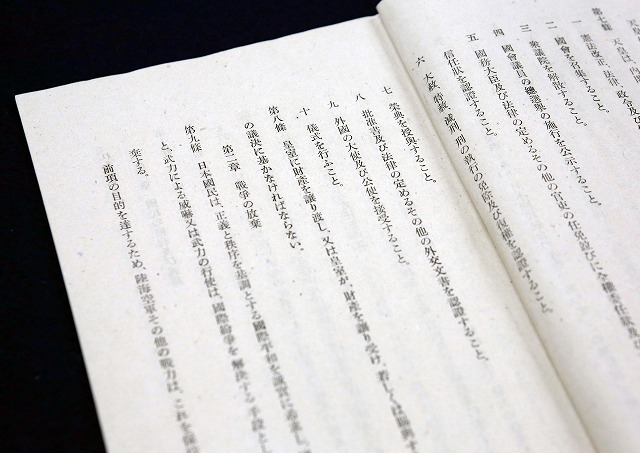 第七條　天皇は、内
一　憲法改正、法律、政令及び
二　國會を召集すること。
三　衆議院を解散すること。
四　國會議員の總選擧の施行を公示すること。
五　國務大臣及び法律の定めるその他の官吏の任免竝びに全權委任狀及び
信任狀を認證すること。
六　大赦、特赦、減刑、刑の執行の免除及び復權を認證すること。
七　榮典を授與すること。
八　批准書及び法律の定めるその他の外交文書を認證すること。
九　外國の大使及び公使を接受すること。
十　儀式を行ふこと。
第八條　皇室に財產を讓り渡し、又は皇室が、財產を讓り受け、若しくは賜與す
の議決に基かなければならない。
第二章　戰爭の放棄
第九條　日本國民は、正義と秩序を基調とする國際平和を誠實に希求し、
と、武力による威嚇又は武力の行使は、國際紛爭を解決する手段とし
棄する。
前項の目的を達するため、陸海空軍その他の戰力は、これを保持